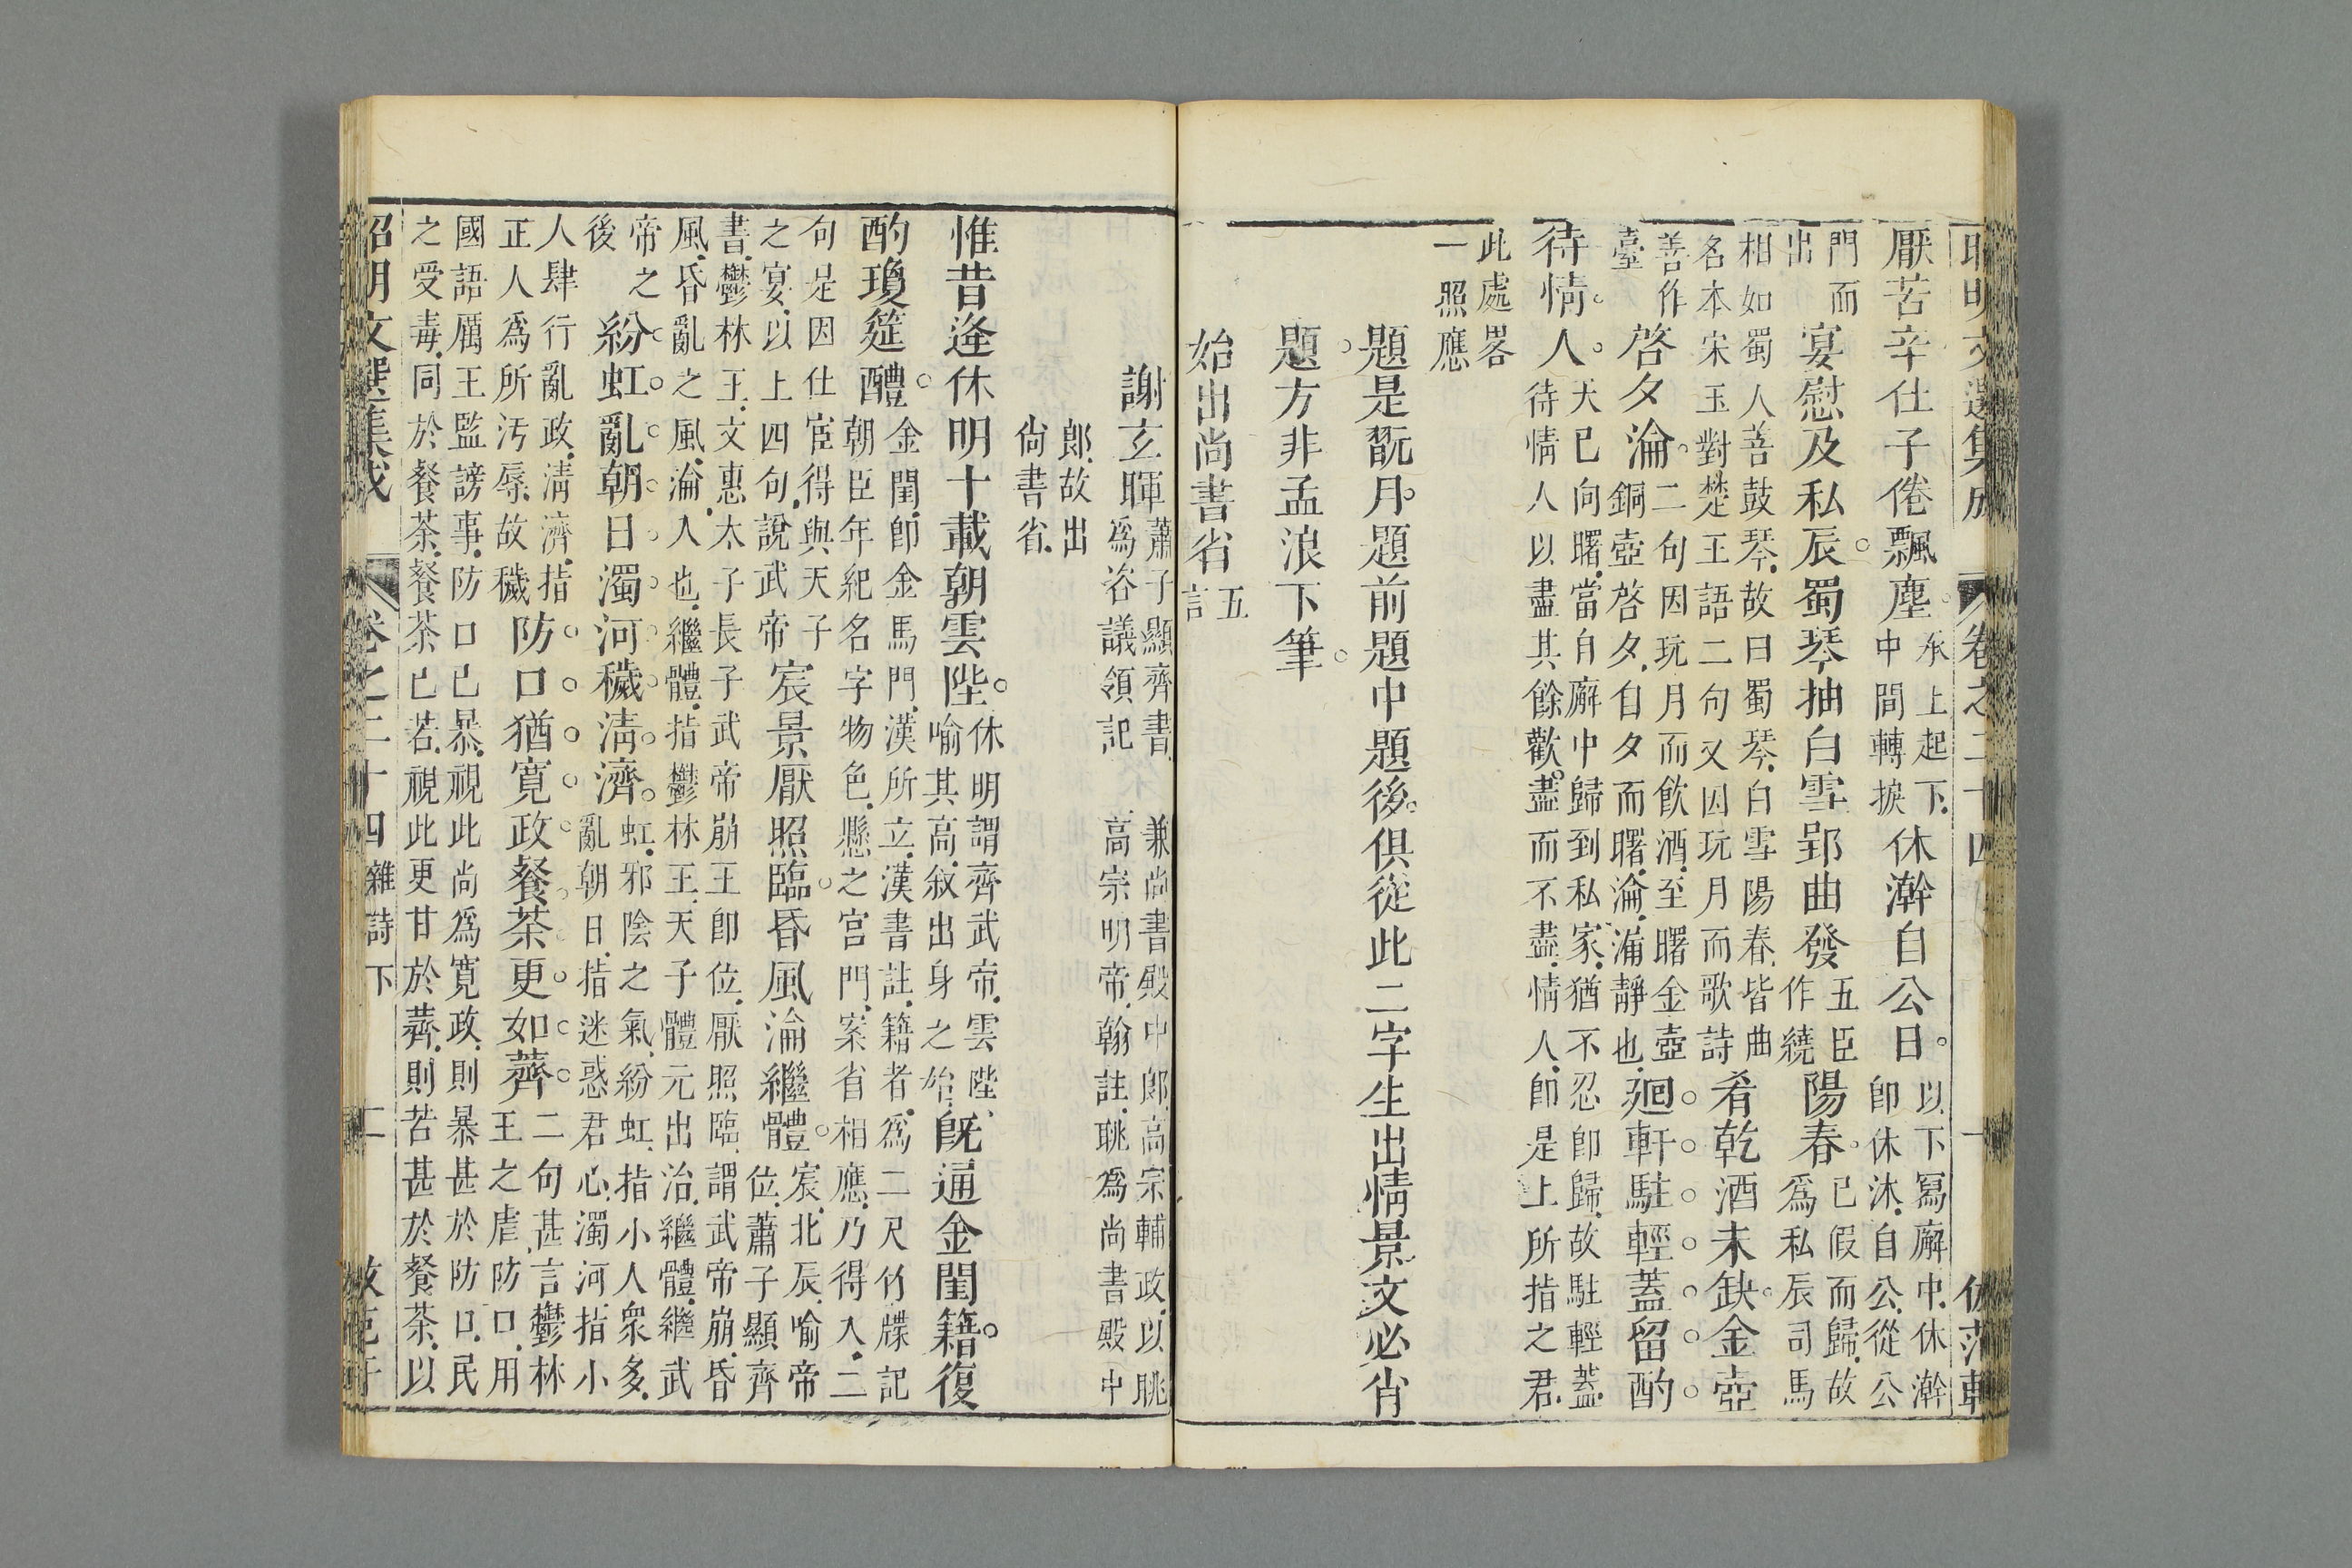 昭明文選集成 卷之二十四 一 倣范軒
厭苦辛仕子倦飄塵承上起下中間轉捩休澣自公日以下寫廨中休澣即休沐自公從公
門而出宴慰及私辰蜀琴抽白雪郢曲發五臣作繞陽春已假而歸故為私辰司馬
相如蜀人善鼓琴故曰蜀琴白雪陽春皆曲名本宋玉對楚王語二句又因玩月而歌詩肴乾酒未缺金壺
善作臺啓夕淪二句因玩月而飲酒至曙金壺銅壺啓夕自夕而曙淪淪靜也廻軒駐輕蓋留酌
待情人天已向曙當自廨中歸到私家猶不忍即歸故駐輕蓋待情人以盡其餘歡盡而不盡情人即是上所指之君
此處畧一照應
題是翫月題前題中題後俱從此二字生出情景文必肖
題方非孟浪下筆
始出尚書省五言
謝玄暉蕭子顯齊書兼尚書殿中郎高宗輔政以朓為咨議領記高宗明帝翰註朓為尚書殿中
郎故出尚書省
惟昔逢休明十載朝雲陛休明謂齊武帝雲陛喻其高敘出身之始既通金閨籍復
酌瓊筵醴金閨即金馬門漢所立漢書註籍者為二尺竹牒記朝臣年紀名字物色懸之宮門案省相應乃得入二
句是因仕宦得與天子之宴以上四句說武帝宸景厭照臨昏風淪繼體宸北辰喻帝位蕭子顯齊
書鬱林王文惠太子長子武帝崩王即位厭照臨謂武帝崩昏風昏亂之風淪入也繼體指鬱林王天子體元出治繼體繼武
帝之後紛虹亂朝日濁河穢清濟虹邪陰之氣紛虹指小人衆多亂朝日指迷惑君心濁河指小
人肆行亂政清濟指正人為所汚辱故穢防口猶寬政餐茶更如薺二句甚言鬱林王之虐防口用
國語厲王監謗事防口已暴視此尚為寬政則暴甚於防口民之受毒同於餐茶餐茶已苦視此更甘於薺則苦甚於餐茶以
昭明文選集成 卷之二十四 雜詩下 二 倣范軒